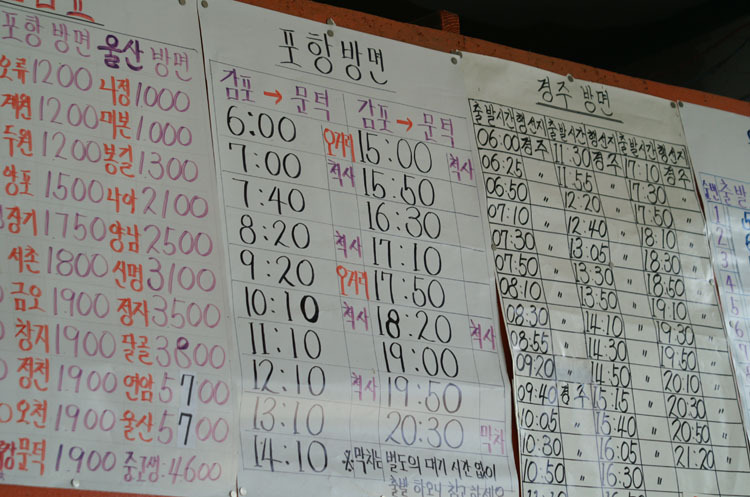 포항 방면 울산 방면
오류 1200 나정 1000
계원 1200 미본 1000
두원 1200 봉길 1300
양포 1500 나아 2100
장기 1750 양남 2500
서촌 1800 신명 3100
금오 1900 정자 3500
창기 1900 달골 3800
정천 1900 연암 5700
오천 1900 울산 5700
문턱 1900 중고생 4600
포항방면
감포 → 문턱 감포 → 문턱
6:00 15:00
7:00 척사 15:50 척사
7:40 16:30
8:20 척사 17:10
9:20 17:50
10:10 척사 18:20 척사
11:10 19:00
12:10 척사 19:50
13:10 20:30 막차
14:10 ※막차는 별도의 대기 시간 없이
출발 하오니 참고하세요
경주 방면
출발시간 행선지 출발시간 행선지 출발시간 행선지
06:00 경주 11:30 경주 17:10 경주
06:25 〃 11:55 〃 17:30 〃
06:50 〃 12:20 〃 17:50 〃
07:10 〃 12:40 〃 18:10 〃
07:30 〃 13:05 〃 18:30 〃
07:50 〃 13:30 〃 18:50 〃
08:10 〃 13:50 〃 19:10 〃
08:30 〃 14:10 〃 19:30 〃
08:55 〃 14:30 〃 19:50 〃
09:20 〃 14:50 〃 20:10 〃
09:40 경주 15:15 〃 20:30 〃
10:05 〃 15:40 〃 20:50 〃
10:30 〃 16:05 〃 21:20 〃
10:50 〃 16:30 〃
순번 출발
1
2
3
4
5
6
7